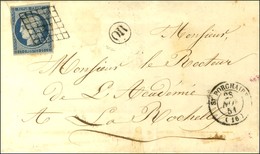 OR
Monsieur
Monsieur le Recteur
De L'Académie
A La Rochelle
ST PORCHAIRE
25
51
(16)